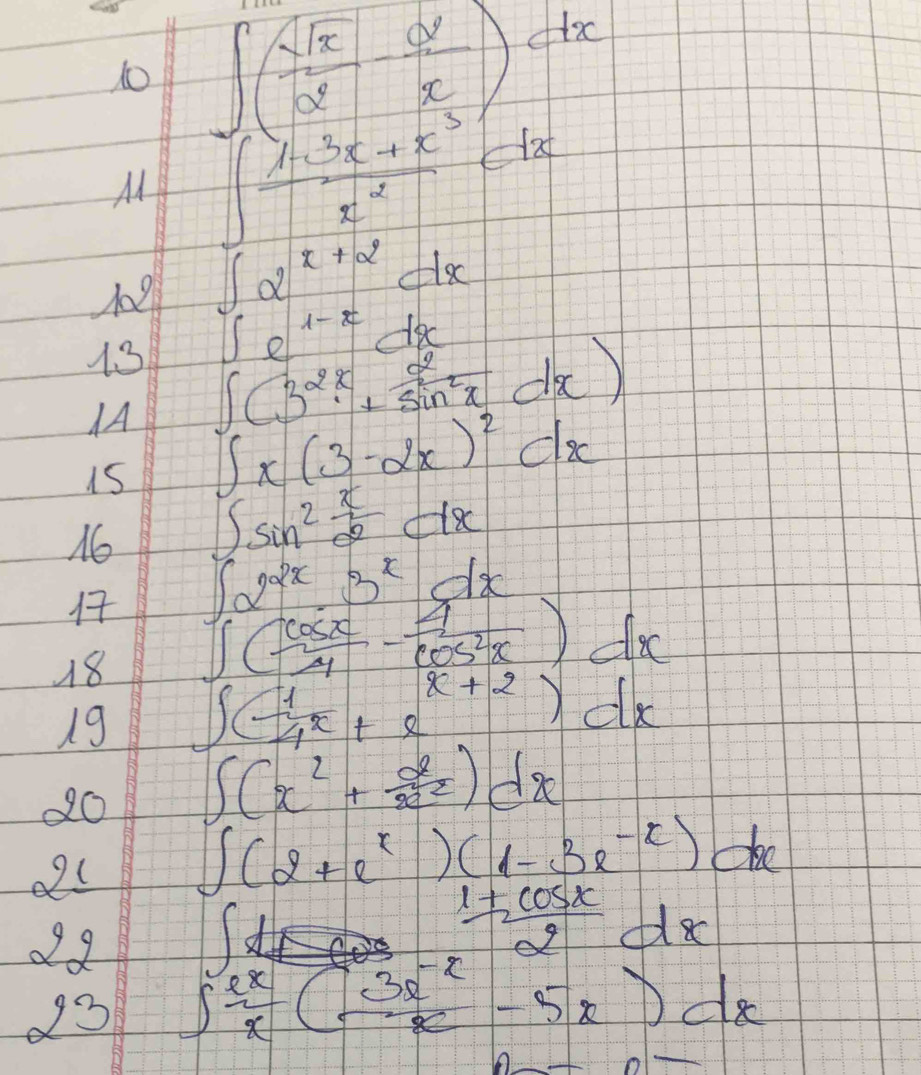 10 ∫(√x/2 - 2/x) dx
11 ∫ (1-3x+x³)/x² dx
12 ∫ 2^(x+2) dx
13 ∫ e^(1-x) dx
14 ∫(3^(2x) + 2/sin²x dx)
15 ∫ x(3-2x)² dx
16 ∫ sin² x/2 dx
17 ∫ 2^(2x) 3^x dx
18 ∫(cosx/4 - 4/cos²x) dx
19 ∫(1/4^x + e^(x+2)) dx
20 ∫(x² + 2/x²) dx
21 ∫(2+e^x)(1-3e^(-x)) dx
22 ∫ (1+cosx)/2 dx
23 ∫ e^x/x (3e^(-x)/x - 5x) dx